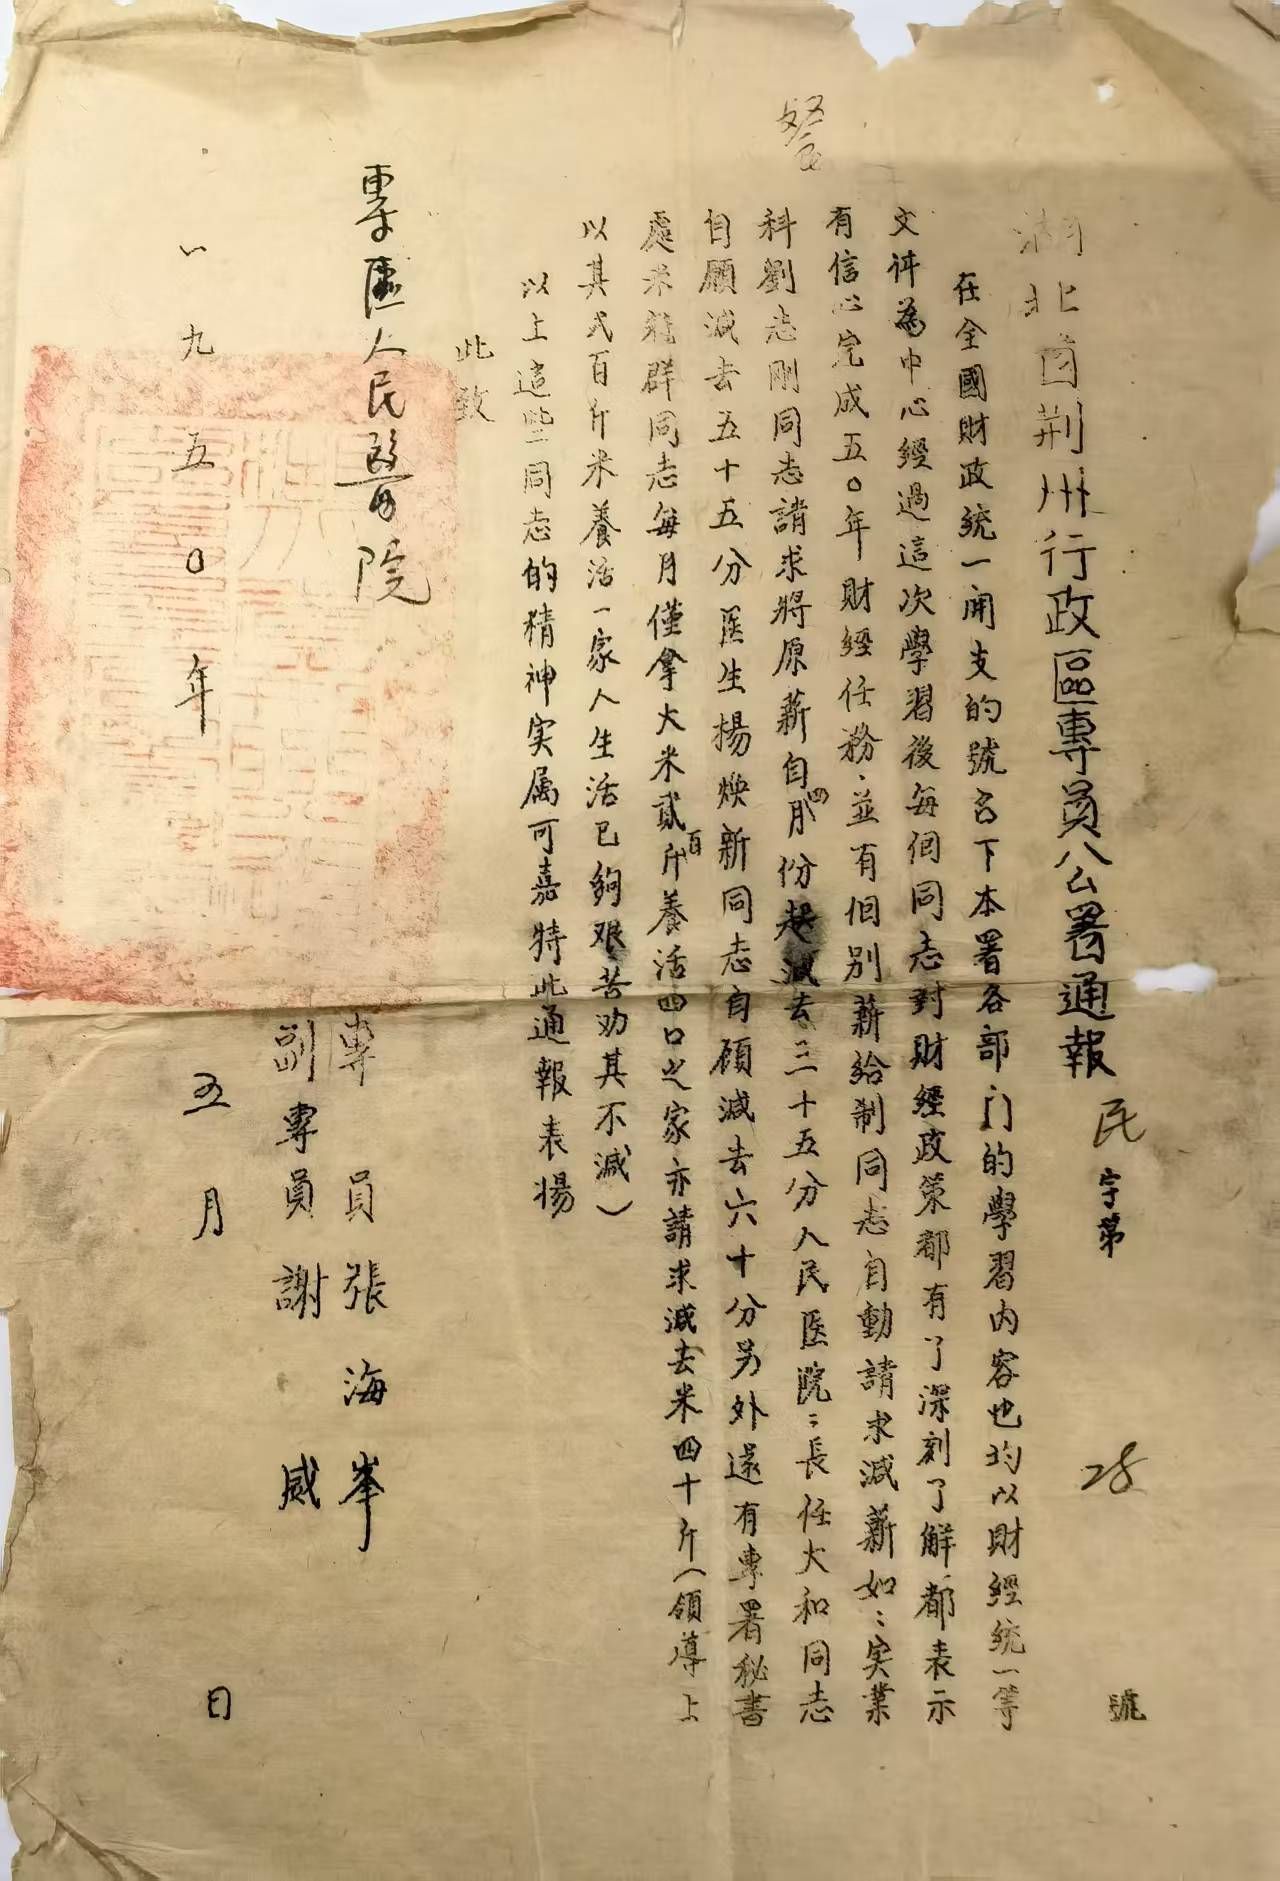 湖北省荆州行政區專員公署通報 民字第 28 號
在全國財政統一開支的號召下本署各部门的學習內容也均以財經統一等
文件為中心經過這次學習後每個同志對財經政策都有了深刻了解都表示
有信心完成五〇年財經任務並有個別薪給制同志自動請求減薪如:实業
科劉志剛同志請求將原薪自四月份起減去三十五分人民医院:長任大和同志
自願減去五十五分医生揚煥新同志自願減去六十分另外還有專署秘書
處米 群同志每月僅拿大米貳百斤養活四口之家亦請求減去米四十斤(領導上
以其弍百斤米養活一家人生活已夠艰苦劝其不減)
以上這些同志的精神实属可嘉特此通報表揚
此致
專區人民醫院
專員張海峯
副專員謝威
一九五〇年五月 日